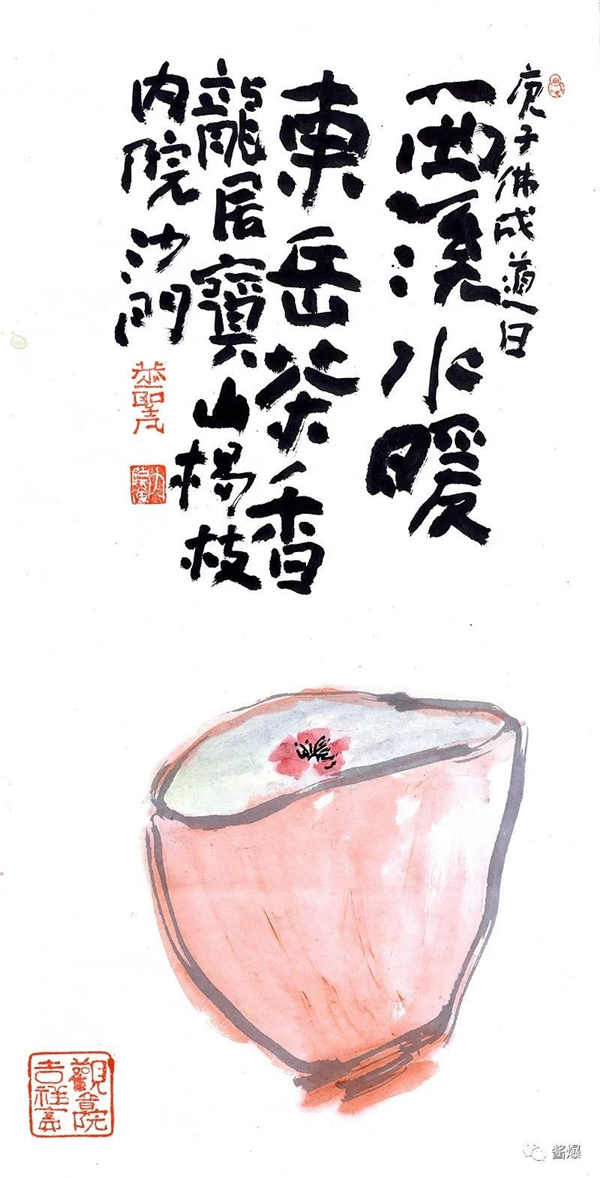 庚子佛成道日
西溪水暖
東岳茶香
龍居寶山楊枝
内院沙門
觀音院
吉祥
酱爆